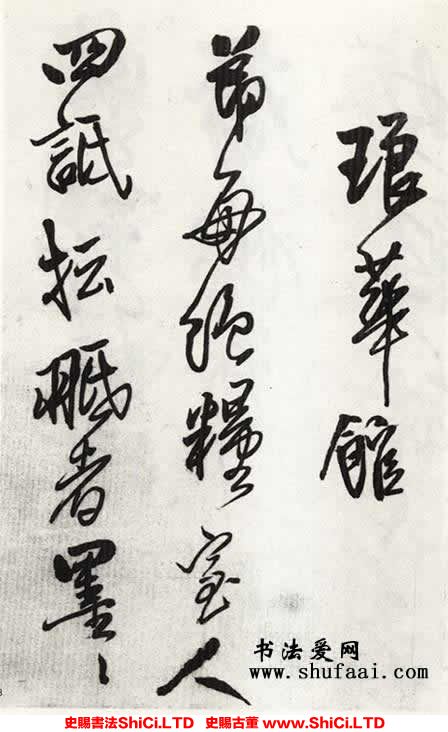 琅華館
弟每絕糧室人
四詆抎眡者墨〻
书法爱网
www.shufaai.com
史賜書法ShiCi.LTD 史賜古董 www.ShiCi.LTD